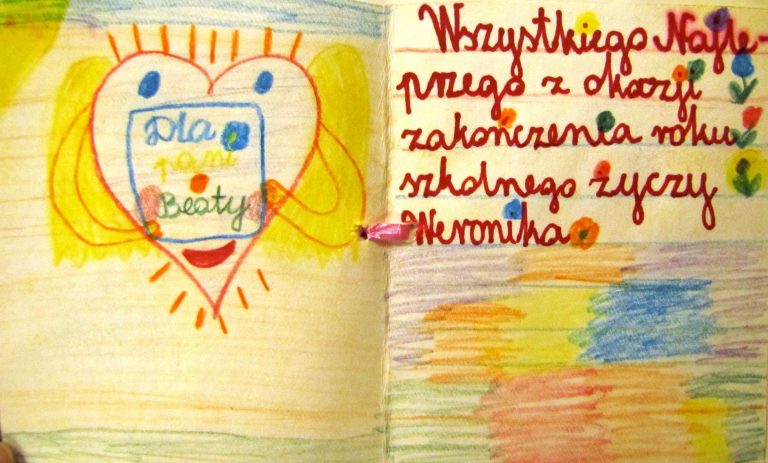 Dla
pani
Beaty
Wszystkiego Najle-
przego z okazji
zakończenia roku
szkolnego życzy
Weronika